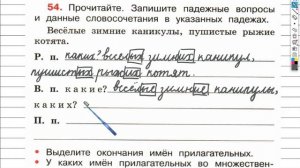 54. Прочитайте. Запишите падежные вопросы
и данные словосочетания в указанных падежах.
Весёлые зимние каникулы, пушистые рыжие
котята.
Р. п. каких? весёлых зимних каникул,
пушистых рыжих котят.
В. п. какие? весёлые зимние каникулы,
каких?
П. п.
• Выделите окончания имён прилагательных.
• У каких имён прилагательных во множествен-